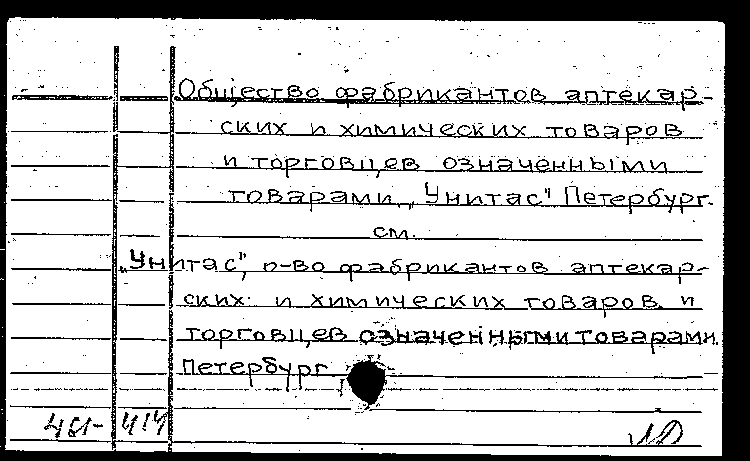 Общество фабрикантов аптекар-
ских и химических товаров
и торговцев означенными
товарами „Унитас" Петербург.
см.
„Унитас", п-во фабрикантов аптекар-
ских и химических товаров и
торговцев означенными товарами
Петербург
461-414